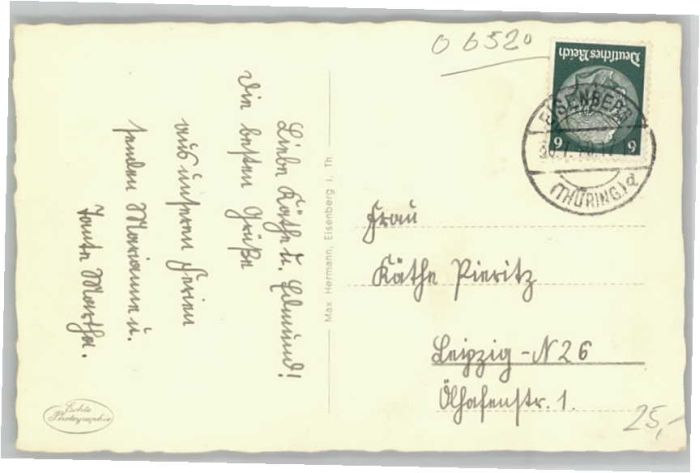 Liebe Käthe u. Edmund!
Die besten Grüße
aus unseren Ferien
senden Marianne u.
Tante Martha.
Max Hermann, Eisenberg i. Th
Echte
Photographie
O 6520
Deutsches Reich
6 6
EISENBERG
(THÜRING) d
Frau
Käthe Pieritz
Leipzig-N26
Ölhafenstr. 1.
25,-